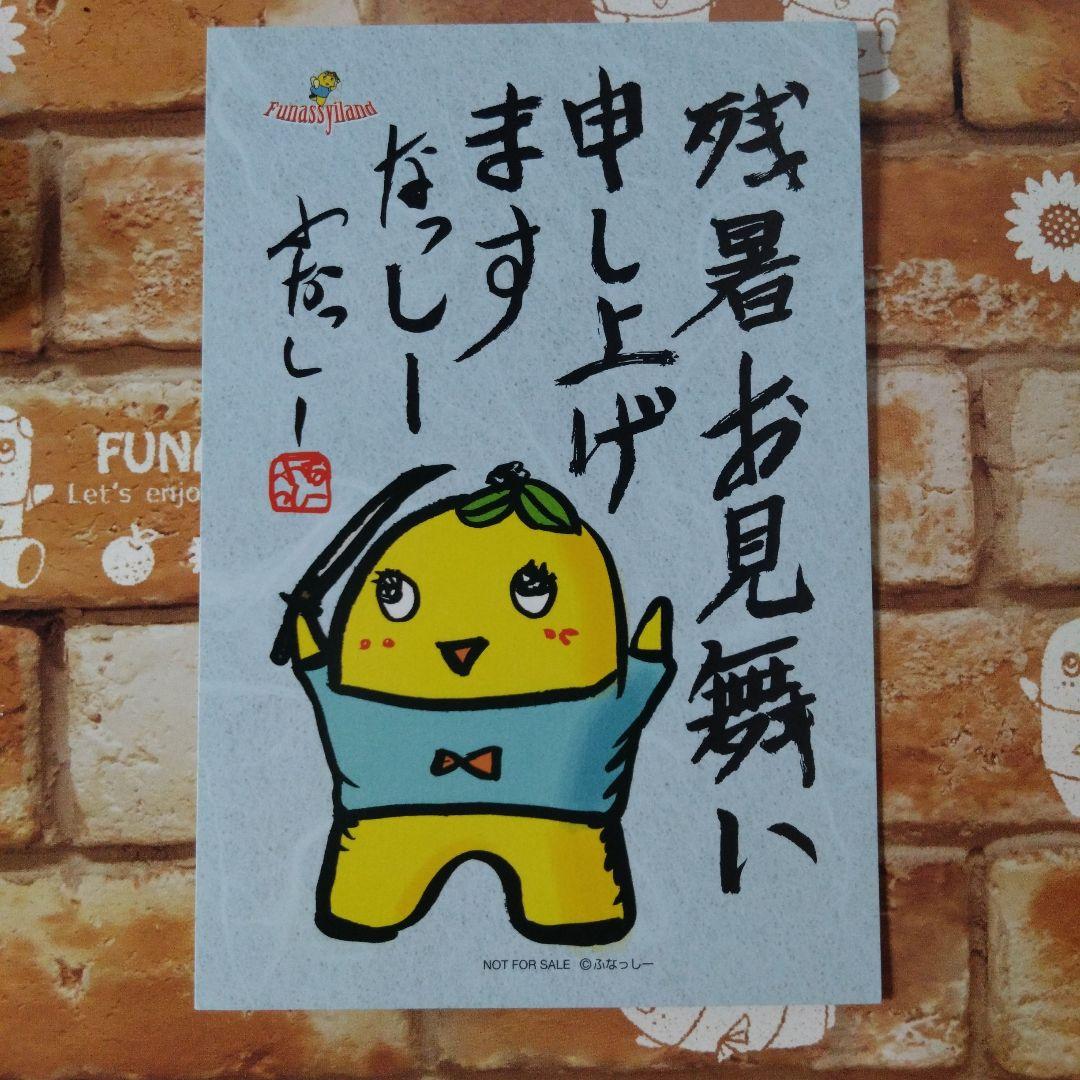 残暑お見舞い
申し上げ
ます
なっしー
ふなっしー
Funassyiland
NOT FOR SALE ©ふなっしー
FUNA
Let's enjo